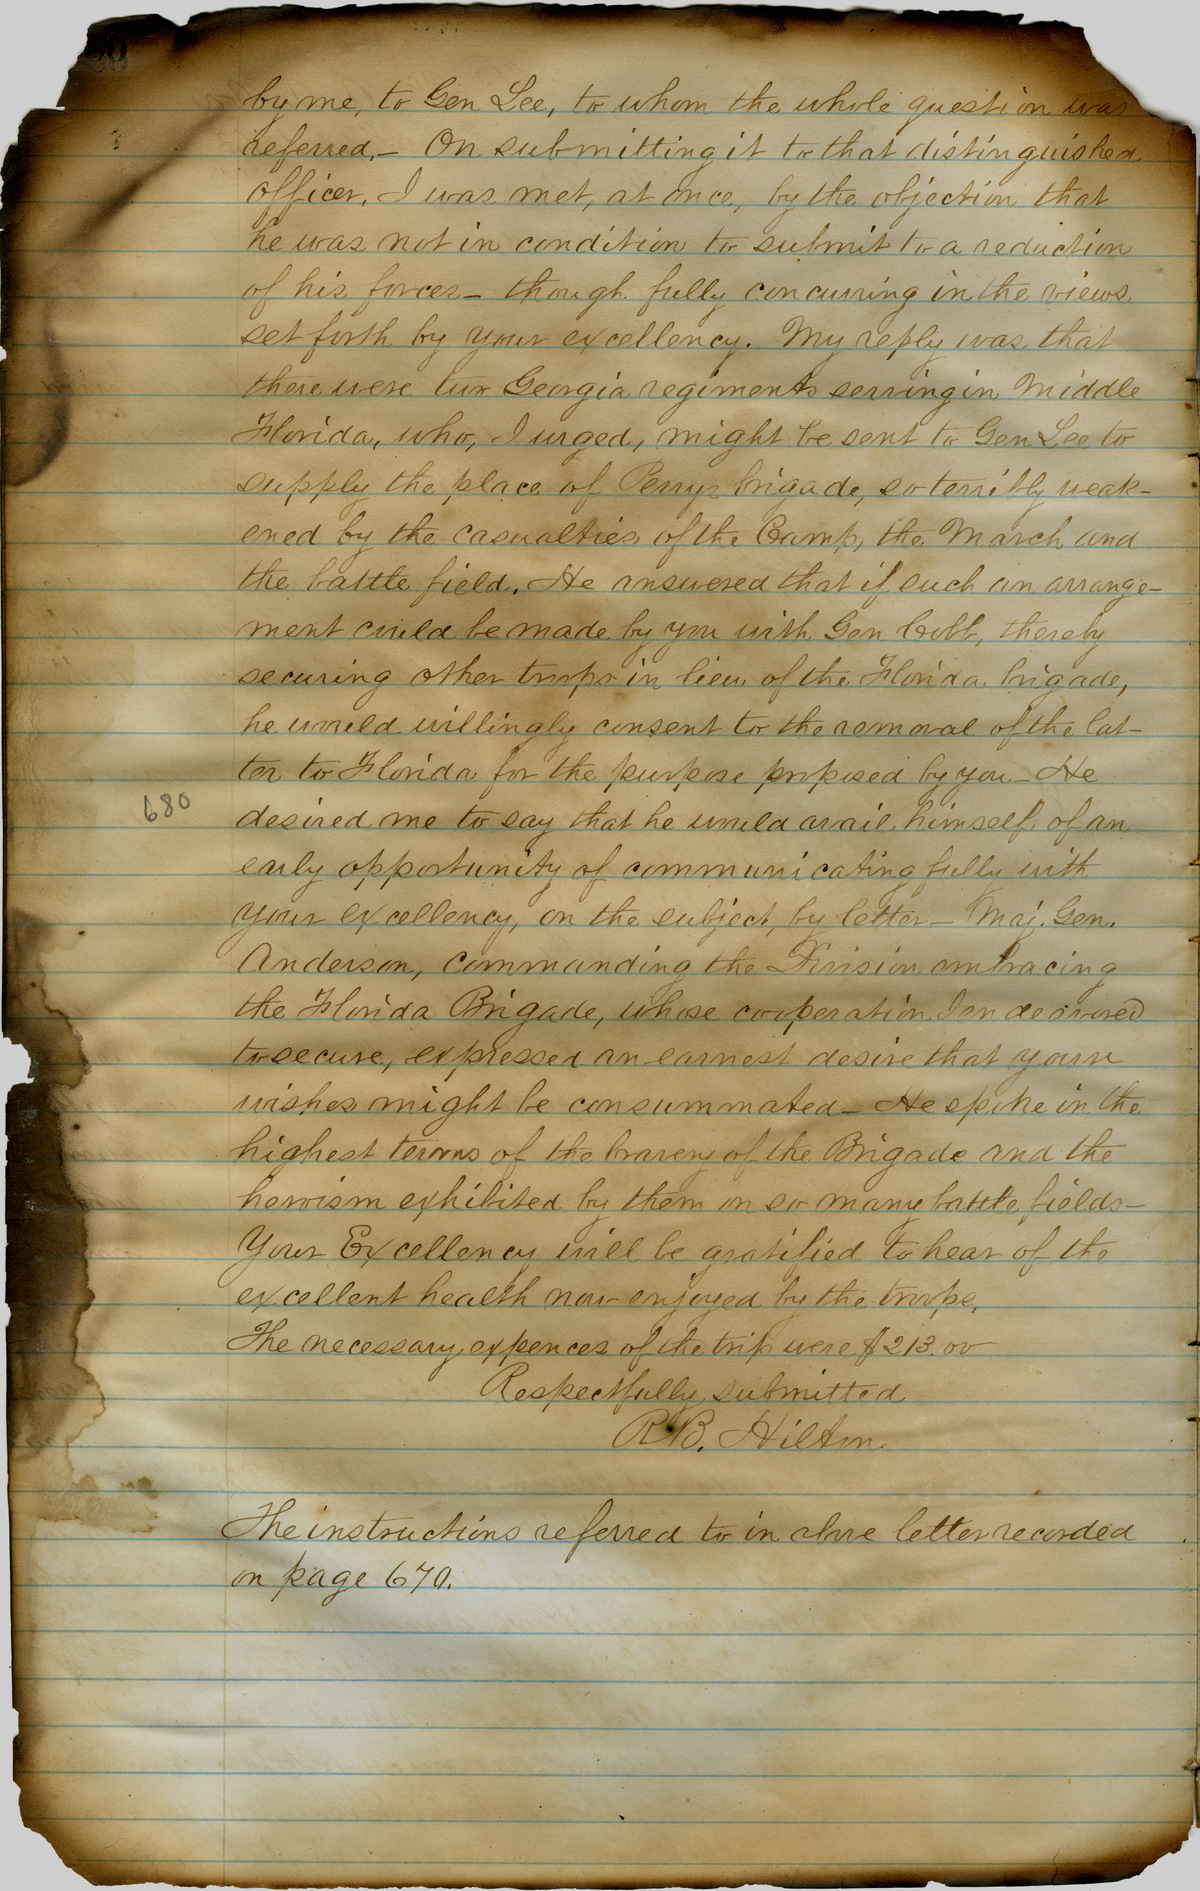 by me, to Gen Lee, to whom the whole question was
referred,– On submitting it to that distinguished
officer, I was met, at once, by the objection that
he was not in condition to submit to a reduction
of his forces– though fully concurring in the views
set forth by your excellency. My reply was that
there were two Georgia regiments serving in Middle
Florida, who, I urged, might be sent to Gen Lee to
supply the place of Perrys brigade, so terribly weak-
ened by the casualties of the Camp, the March and
the battle field. He answered that if such an arrange-
ment could be made by you with Gen Cobb, thereby
securing other troops in lieu of the Florida brigade,
he would willingly consent to the removal of the lat-
ter to Florida for the purpose proposed by you– He
680
desired me to say that he would avail himself of an
early opportunity of communicating fully with
your excellency, on the subject, by letter– Maj. Gen.
Anderson, commanding the Division embracing
the Florida Brigade, whose cooperation I endeavored
to secure, expressed an earnest desire that your
wishes might be consummated– He spoke in the
highest terms of the bravery of the Brigade and the
heroism exhibited by them on so many battle fields–
Your Excellency will be gratified to hear of the
excellent health now enjoyed by the troops.
The necessary expences of the trip were $213.00
Respectfully submitted
R.B. Hilton.
The instructions referred to in above letter recorded
on page 670.